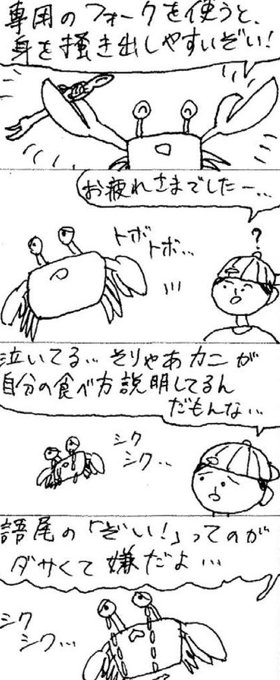 専用のフォークを使うと、
身を掻き出しやすいぞい!
お疲れさまでしたー…
トボ
トボ…
?
泣いてる…そりゃあカニが
自分の食べ方説明してるん
だもんな…
シク
シク…
語尾の「ぞい!」ってのが
ダサくて嫌だよ…
シク
シク…